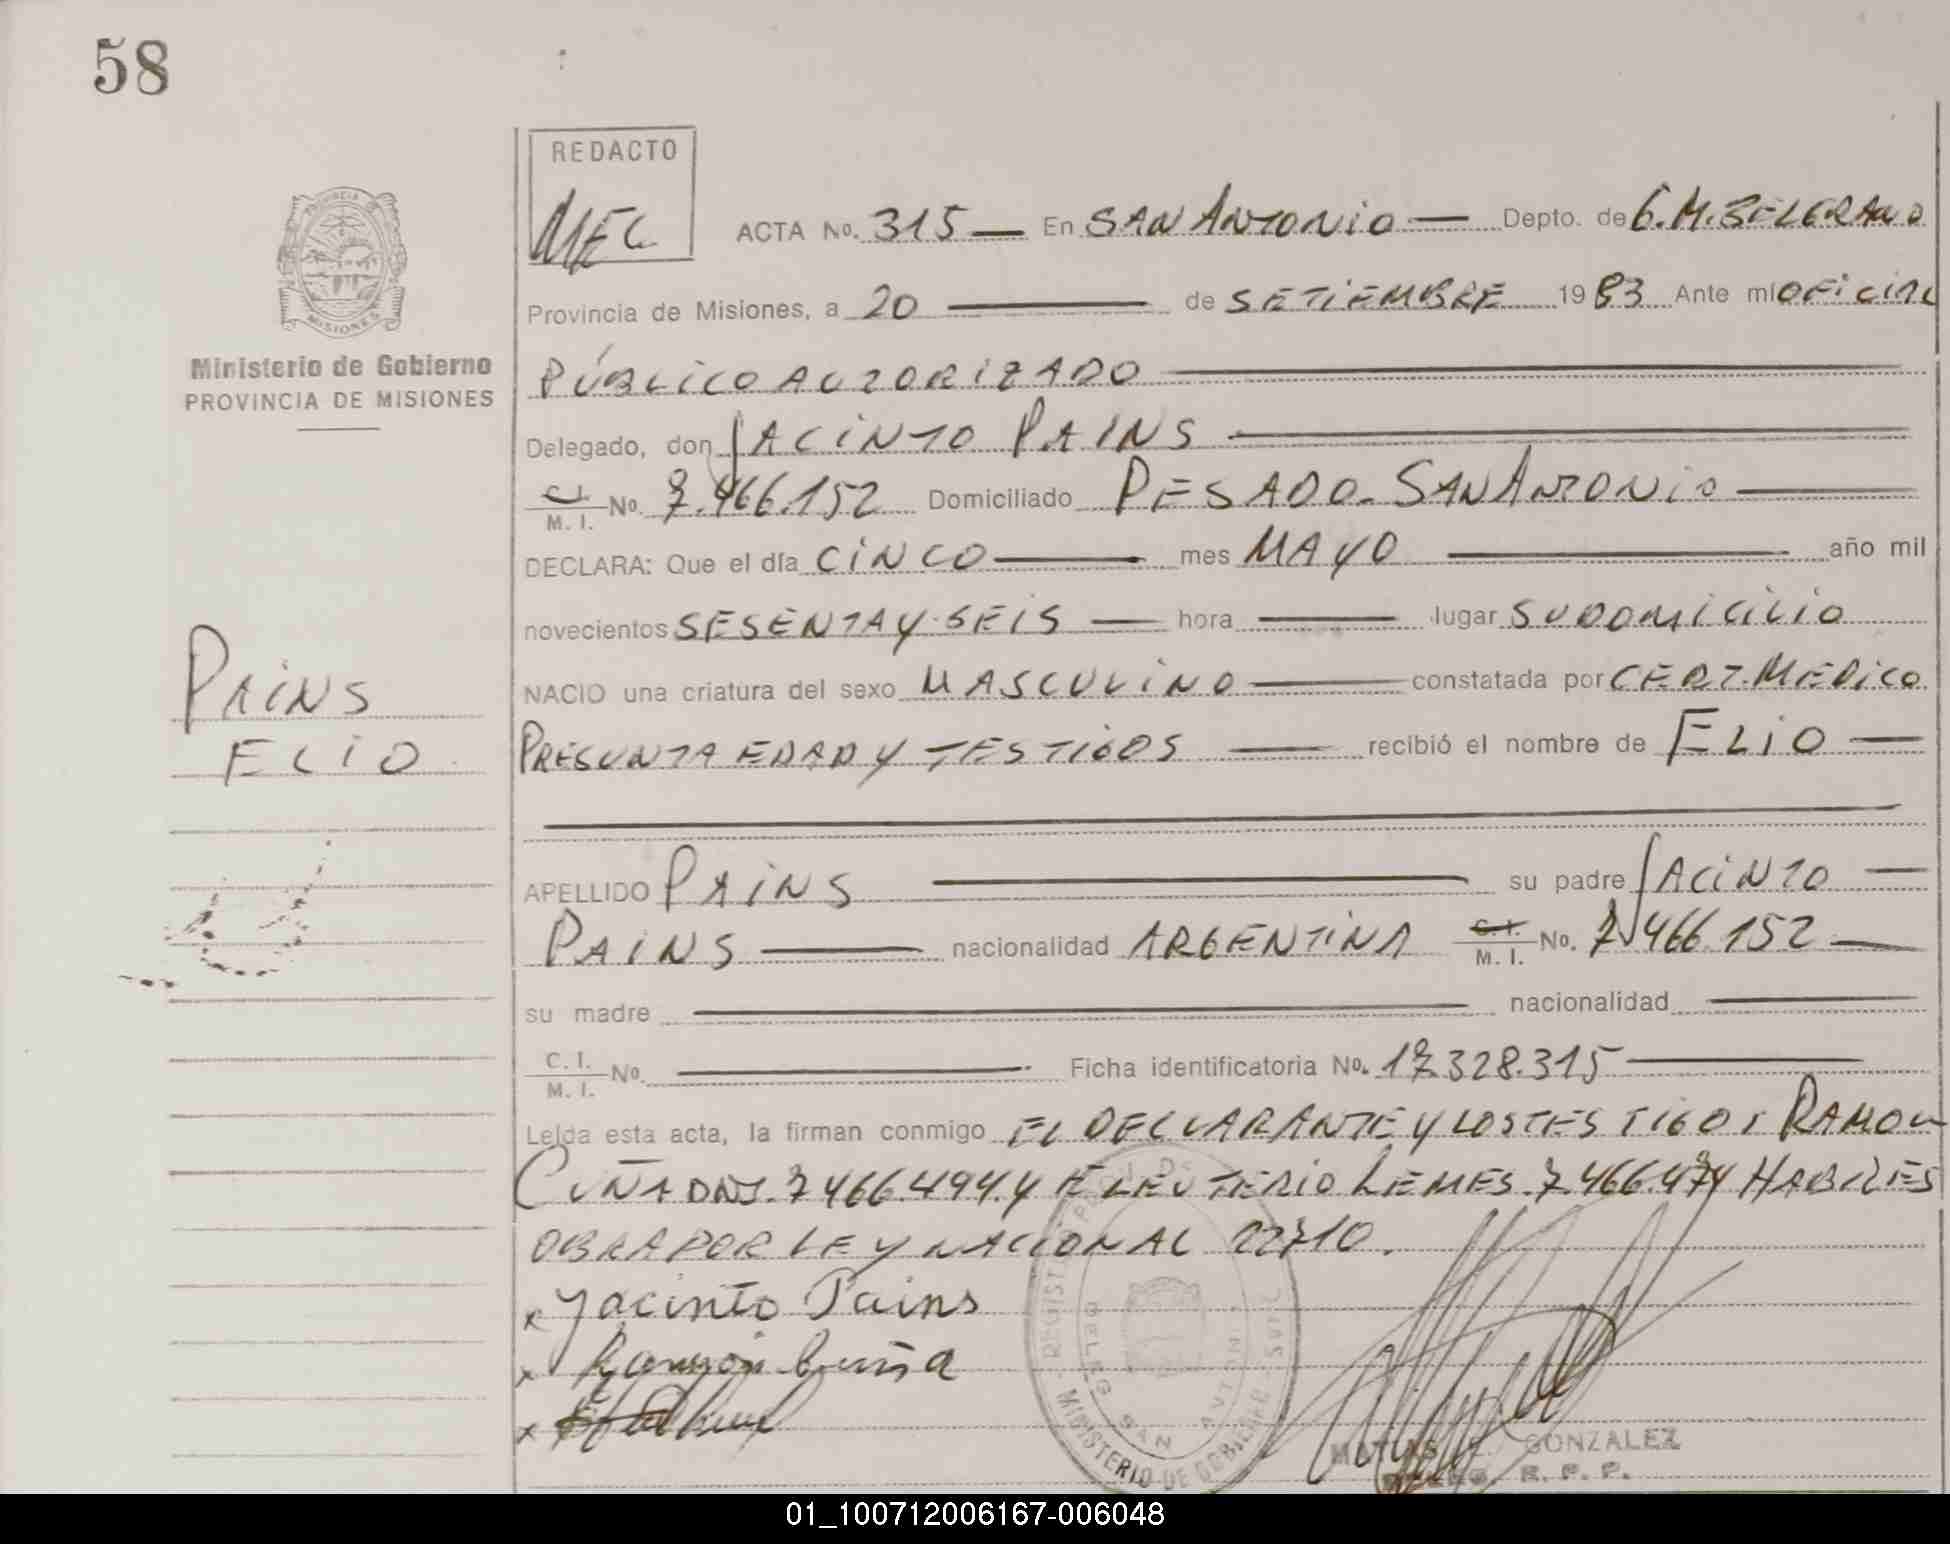 58
REDACTO
MEC
ACTA No. 315 — En SAN ANTONIO — Depto. de G. M. BELGRANO
Provincia de Misiones, a 20 — de SETIEMBRE 1983 Ante mí OFICIAL
PÚBLICO AUTORIZADO
Delegado, don JACINTO PAINS
C.I. / M. I. No. 7.466.152 Domiciliado PESADO - SAN ANTONIO
DECLARA: Que el día CINCO — mes MAYO — año mil
novecientos SESENTA Y SEIS — hora — lugar SU DOMICILIO
NACIO una criatura del sexo MASCULINO — constatada por CERT. MEDICO
PRESUNTA EDAD Y TESTIGOS — recibió el nombre de ELIO —
APELLIDO PAINS — su padre JACINTO —
PAINS — nacionalidad ARGENTINA C.I. / M. I. No. 7.466.152 —
su madre — nacionalidad —
C. I. / M. I. No. — Ficha identificatoria No. 17.328.315 —
Leída esta acta, la firman conmigo EL DECLARANTE Y LOS TESTIGOS RAMON
CUÑA DNI. 7466.494. Y ELEUTERIO LEMES. 7.466.474 HABILES
OBRA POR LEY NACIONAL 22710.
x Jacinto Pains
x Ramón Cuña
x
Ministerio de Gobierno
PROVINCIA DE MISIONES
PROVINCIA DE
MISIONES
PAINS
ELIO
REGISTRO
MINISTERIO DE GOBIERNO
DELEG. SAN ANTONIO
MATIAS E. GONZALEZ
DELEG. R. P. P.
01_100712006167-006048